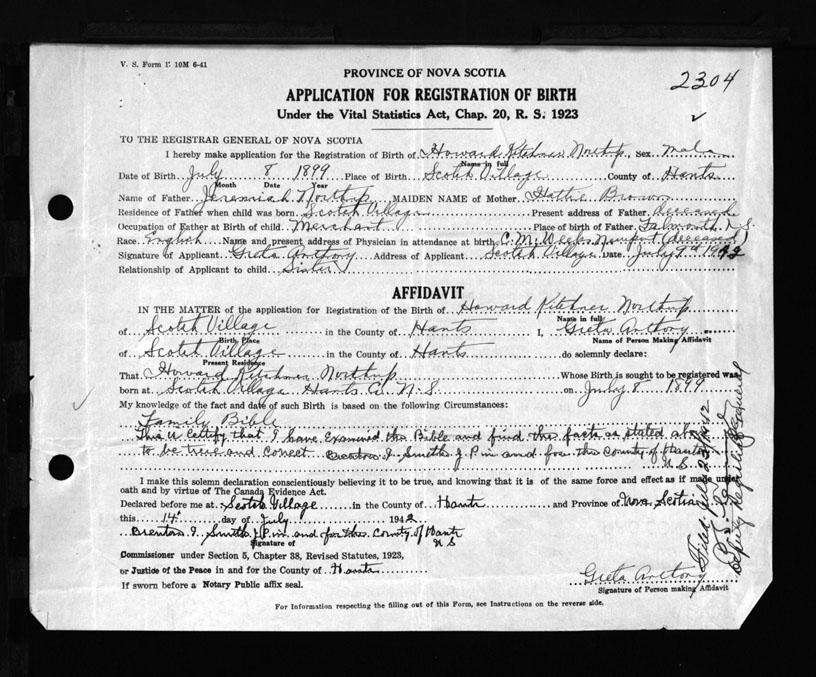 V. S. Form 1: 10M 6-41
PROVINCE OF NOVA SCOTIA
2304
APPLICATION FOR REGISTRATION OF BIRTH
Under the Vital Statistics Act, Chap. 20, R. S. 1923
TO THE REGISTRAR GENERAL OF NOVA SCOTIA
I hereby make application for the Registration of Birth of Howard Kitchner Northup, Sex Male
Name in full
Date of Birth July 8 1899 Place of Birth Scotch Village County of Hants
Month Date Year
Name of Father Jeremiah Northup MAIDEN NAME of Mother Hattie Brown
Residence of Father when child was born Scotch Village Present address of Father deceased
Occupation of Father at Birth of child Merchant Place of birth of Father Falmouth, N.S.
Race English Name and present address of Physician in attendance at birth C. M. Weeks Newport (deceased)
Signature of Applicant Greta Anthony Address of Applicant Scotch Village Date July 1942
Relationship of Applicant to child Sister
AFFIDAVIT
IN THE MATTER of the application for Registration of the Birth of Howard Kitchner Northup
Name in full
of Scotch Village in the County of Hants I, Greta Anthony
Birth Place Name of Person Making Affidavit
of Scotch Village in the County of Hants do solemnly declare:
Present Residence
That Howard Kitchner Northup Whose Birth is sought to be registered was
born at Scotch Village Hants Co. N.S. on July 8 1899
My knowledge of the fact and date of such Birth is based on the following Circumstances:
Family Bible
This is Certify that I have examined this Bible and find the facts as stated above
to be true and correct Brenton I. Smith J.P. in and for the County of Hants
N S
I make this solemn declaration conscientiously believing it to be true, and knowing that it is of the same force and effect as if made under
oath and by virtue of The Canada Evidence Act.
Declared before me at Scotch Village in the County of Hants and Province of Nova Scotia
this 14 day of July 1942
Brenton I. Smith J.P. in and for the County of Hants
Signature of N S
Commissioner under Section 5, Chapter 38, Revised Statutes, 1923,
or Justice of the Peace in and for the County of Hants
If sworn before a Notary Public affix seal.
Greta Anthony
Signature of Person making Affidavit
For Information respecting the filling out of this Form, see Instructions on the reverse side.
Filed July 23 1942
Deputy Registrar General